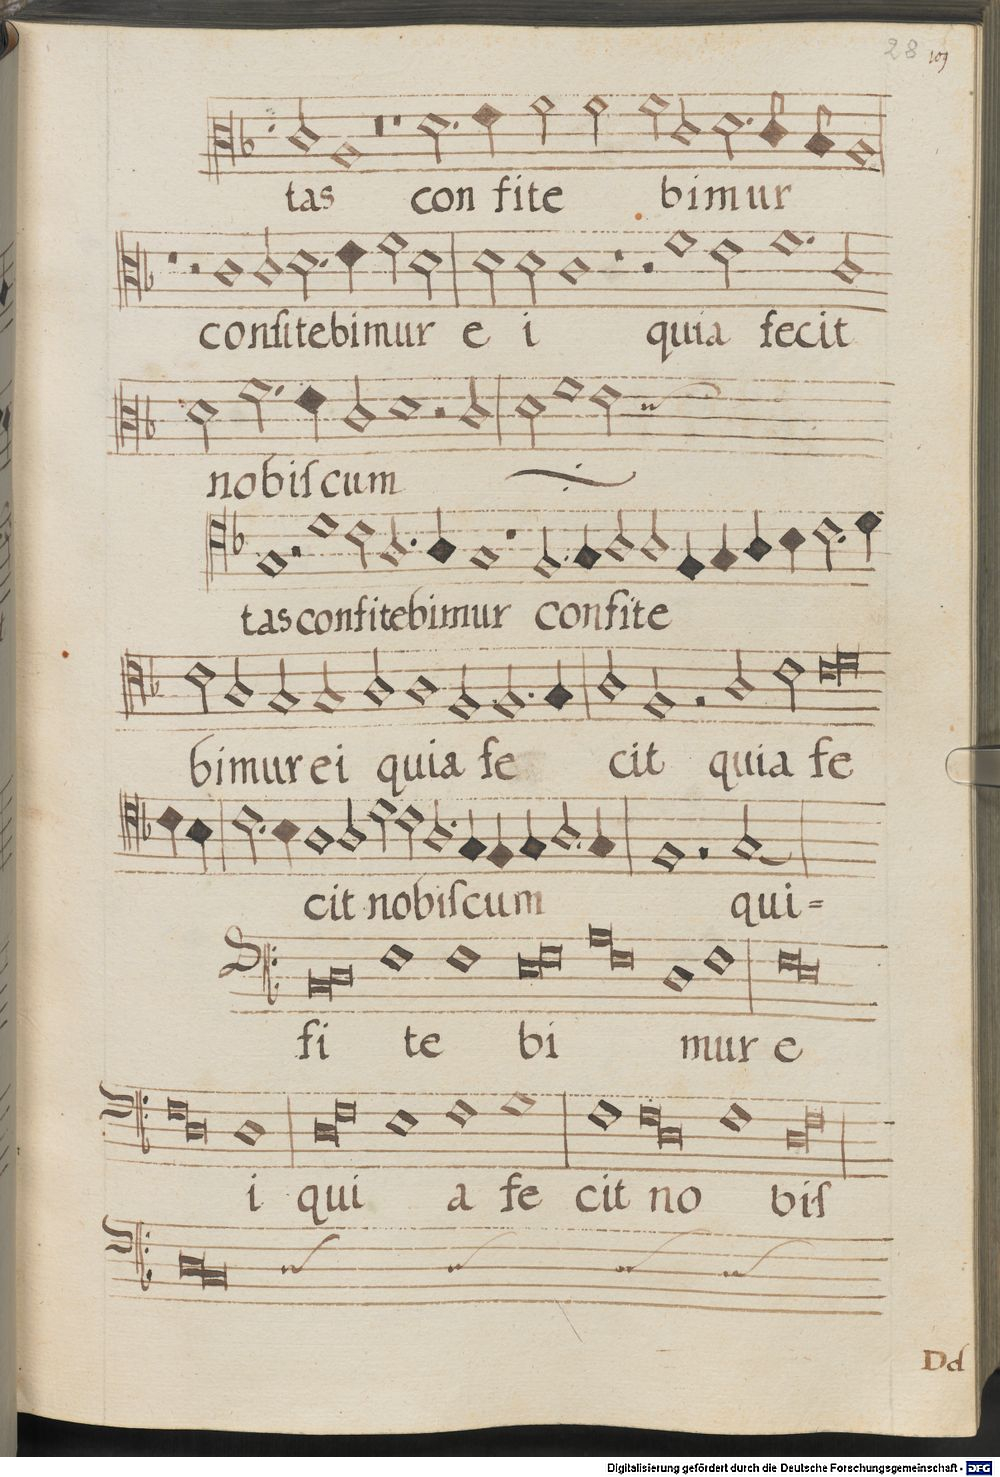 28 109
tas con fite bimur
confitebimur e i quia fecit
nobiſcum
tas confitebimur confite
bimur ei quia fe cit quia fe
cit nobiſcum qui=
fi te bi mur e
i qui a fe cit no biſ
Dd
Digitalisierung gefördert durch die Deutsche Forschungsgemeinschaft - DFG